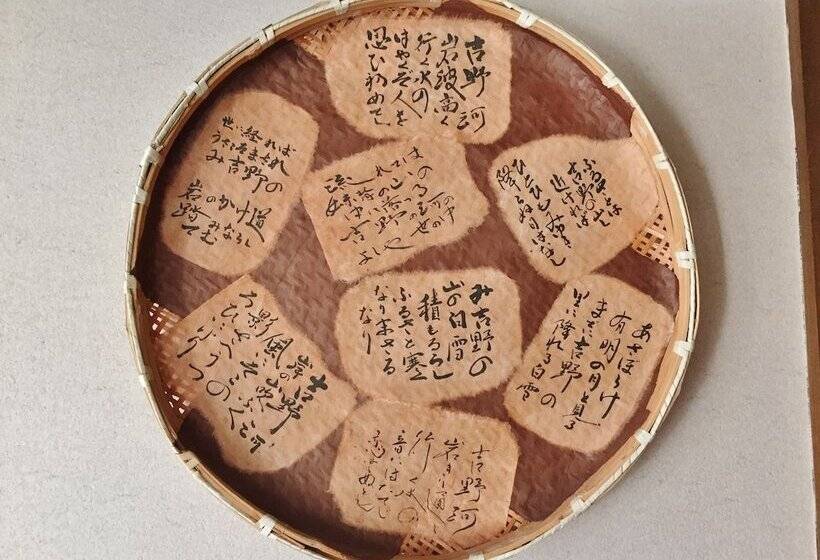 吉野河
岩波高く
行く水の
はやくぞ人を
思ひ初めてし
世に経れば
うさこそまされ
み吉野の
岩のかけ道
踏みならしてむ
流れては
妹背の山の
中に落つる
吉野の河の
よしや世の中
ふるさとは
吉野の山し
近ければ
ひとひもみ雪
降らぬ日はなし
み吉野の
山の白雪
積もるらし
ふるさと寒く
なりまさる
なり
あさぼらけ
有明の月と見る
までに吉野の
里に降れる白雪
吉野河
岸の山吹
ふく
風に
そこの
影さへ
うつろひにけり
吉野河
岩きり通し
行く水の
音にはたてじ